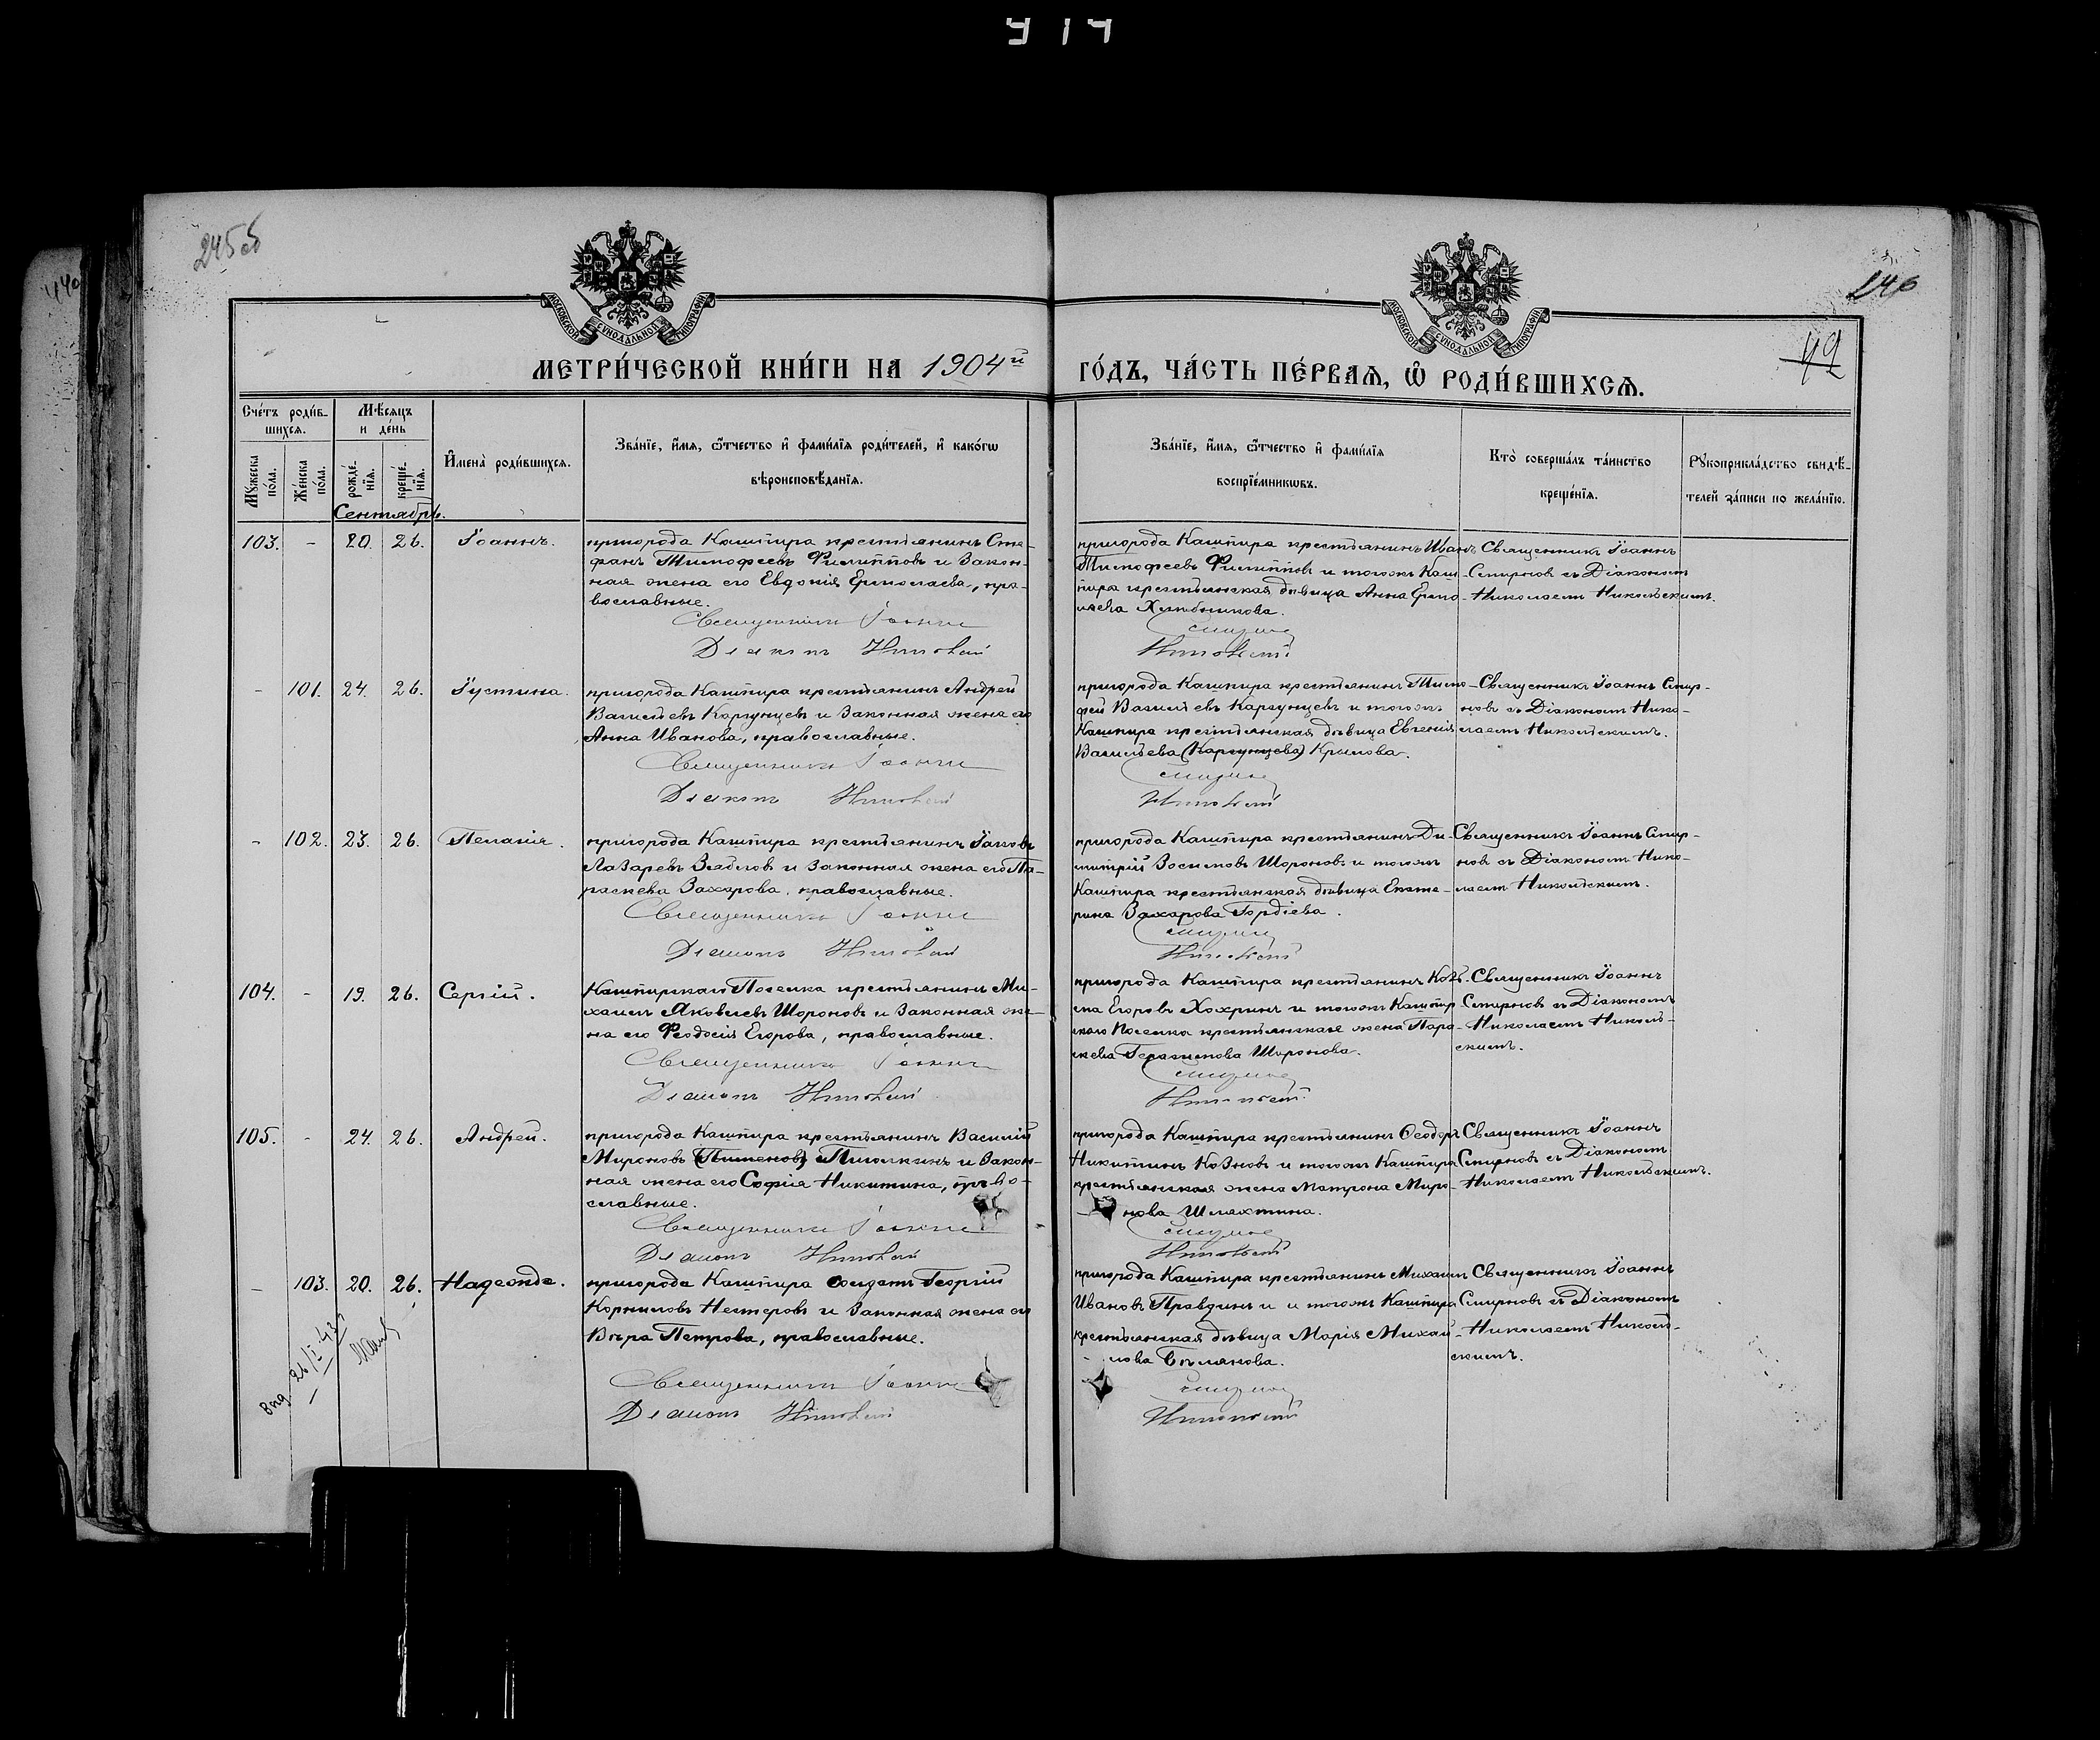 914
245 об
246
49
МОСКОВСКОЙ СѴНОДАЛЬНОЙ ТИПОГРАФІИ
МОСКОВСКОЙ СѴНОДАЛЬНОЙ ТИПОГРАФІИ
МЕТРИ́ЧЕСКОЙ КНИ́ГИ НА 1904й ГО́ДЪ, ЧА́СТЬ ПЕ́РВАѦ, Ѡ҆ РОДИ́ВШИХСѦ.
Сче́тъ роди́в-
шихсѧ.
Мѣ́сѧцъ
и де́нь
Мꙋ́жеска
по́ла.
Же́нска
по́ла.
рожде́-
нїѧ.
креще́-
нїѧ.
И҆мена̀ роди́вшихсѧ.
Зва́нїе, и҆́мѧ, ѻ҆́тчество и҆ фами́лїѧ роди́телей, и҆ како́гѡ
вѣроисповѣ́данїѧ.
Зва́нїе, и҆́мѧ, ѻ҆́тчество и҆ фами́лїѧ
воспрїе́мникѡвъ.
Кто̀ соверша́лъ та́инство
креще́нїѧ.
Рꙋкоприкла́дство свидѣ́-
телей за́писи по жела́нїю.
Сентябрь.
103. - 20. 26. Іоаннъ.
пригорода Кашпира крестьянинъ Сте-
фанъ Тимофеевъ Филипповъ и закон-
ная жена его Евдокія Ермолаева, пра-
вославные.
Священникъ Іоаннъ
Діаконъ Никольскій
пригорода Кашпира крестьянинъ Иванъ
Тимофеевъ Филипповъ и тогожъ Каш-
пира крестьянская дѣвица Анна Ермо-
лаева Хлѣбникова.
Смирновъ
Никольскій
Священникъ Іоаннъ
Смирновъ съ Діакономъ
Николаемъ Никольскимъ.
- 101. 24. 26. Іустина.
пригорода Кашпира крестьянинъ Андрей
Васильевъ Каргунцевъ и законная жена его
Анна Иванова, православные.
Священникъ Іоаннъ
Діаконъ Никольскій
пригорода Кашпира крестьянинъ Тимо-
фей Васильевъ Каргунцевъ и тогожъ
Кашпира крестьянская дѣвица Евгенія
Васильева (Каргунцева) Крылова.
Смирновъ
Никольскій
Священникъ Іоаннъ Смир-
новъ съ Діакономъ Нико-
лаемъ Никольскимъ.
- 102. 23. 26. Пелагія.
пригорода Кашпира крестьянинъ Іаковъ
Лазаревъ Зябловъ и законная жена его Па-
раскева Захарова, православные.
Священникъ Іоаннъ
Діаконъ Никольскій
пригорода Кашпира крестьянинъ Ди-
митрій Зосимовъ Шороновъ и тогожъ
Кашпира крестьянская дѣвица Екате-
рина Захарова Гордіева.
Смирновъ
Никольскій
Священникъ Іоаннъ Смир-
новъ съ Діакономъ Нико-
лаемъ Никольскимъ.
104. - 19. 26. Сергій.
Кашпирскаго Поселка крестьянинъ Ми-
хаилъ Яковлевъ Шороновъ и законная же-
на его Феодосія Егорова, православные.
Священникъ Іоаннъ
Діаконъ Никольскій
пригорода Кашпира крестьянинъ Козь-
ма Егоровъ Хохринъ и тогожъ Кашпир-
скаго Поселка крестьянская жена Пара-
скева Герасимова Шоронова.
Смирновъ
Никольскій
Священникъ Іоаннъ
Смирновъ съ Діакономъ
Николаемъ Николь-
скимъ.
105. - 24. 26. Андрей.
пригорода Кашпира крестьянинъ Василій
Мироновъ (Пименовъ) Пиголкинъ и закон-
ная жена его Софія Никитина, право-
славные.
Священникъ Іоаннъ
Діаконъ Никольскій
пригорода Кашпира крестьянинъ Ѳеодоръ
Никитинъ Козновъ и тогожъ Кашпира
крестьянская жена Матрона Миро-
нова Шлахтина.
Смирновъ
Никольскій
Священникъ Іоаннъ
Смирновъ съ Діакономъ
Николаемъ Никольскимъ.
- 103. 20. 26. Надежда.
пригорода Кашпира солдатъ Георгій
Корниловъ Нестеровъ и законная жена его
Вѣра Петрова, православные.
Священникъ Іоаннъ
Діаконъ Никольскій
пригорода Кашпира крестьянинъ Михаилъ
Ивановъ Правдинъ и и тогожъ Кашпира
крестьянская дѣвица Марія Михай-
лова Бѣлянова.
Смирновъ
Никольскій
Священникъ Іоаннъ
Смирновъ съ Діакономъ
Николаемъ Николь-
скимъ.